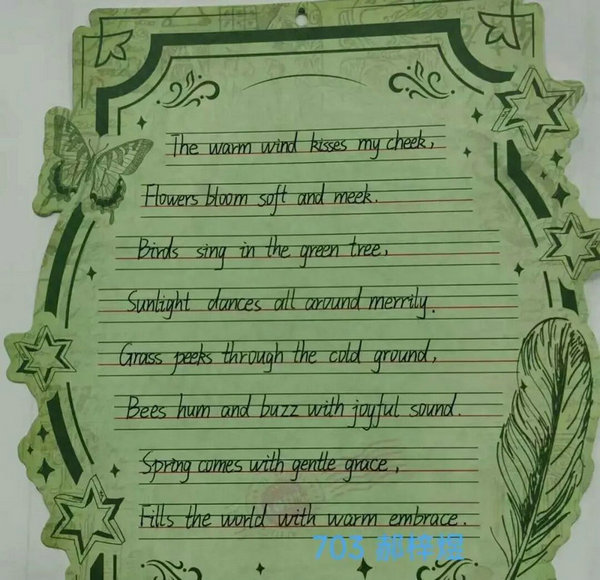 The warm wind kisses my cheek,
Flowers bloom soft and meek.
Birds sing in the green tree,
Sunlight dances all around merrily.
Grass peeks through the cold ground,
Bees hum and buzz with joyful sound.
Spring comes with gentle grace,
Fills the world with warm embrace.
703 郝梓煜